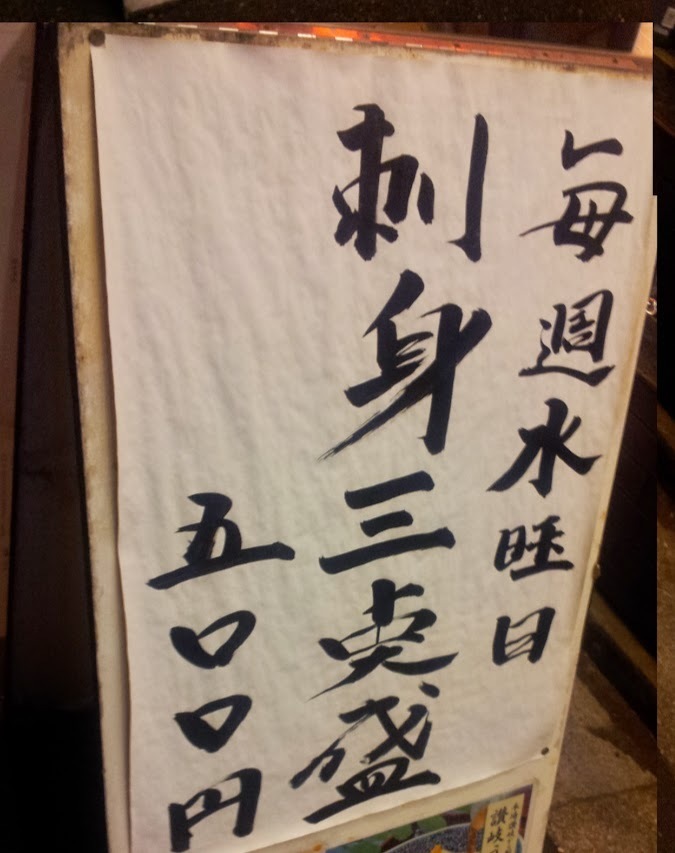 毎週水曜日
刺身三点盛
五〇〇円
讃岐